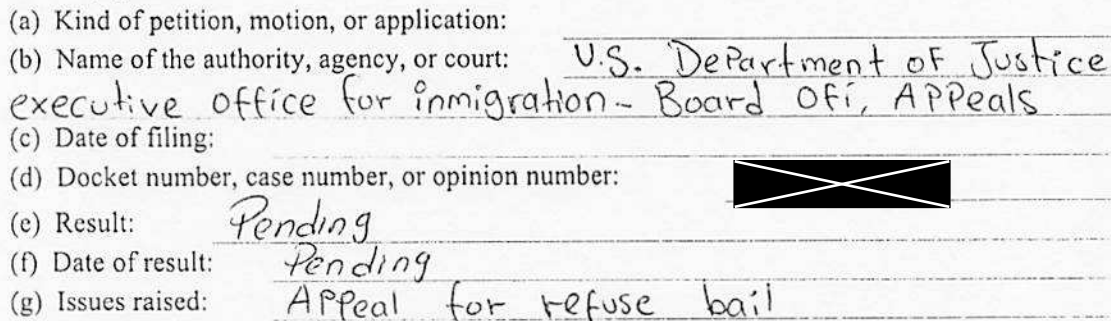 (a) Kind of petition, motion, or application:
(b) Name of the authority, agency, or court: U.S. Department of Justice
executive office for inmigration - Board Ofi, APPeals
(c) Date of filing:
(d) Docket number, case number, or opinion number:
(e) Result: Pending
(f) Date of result: Pending
(g) Issues raised: APPeal for refuse bail